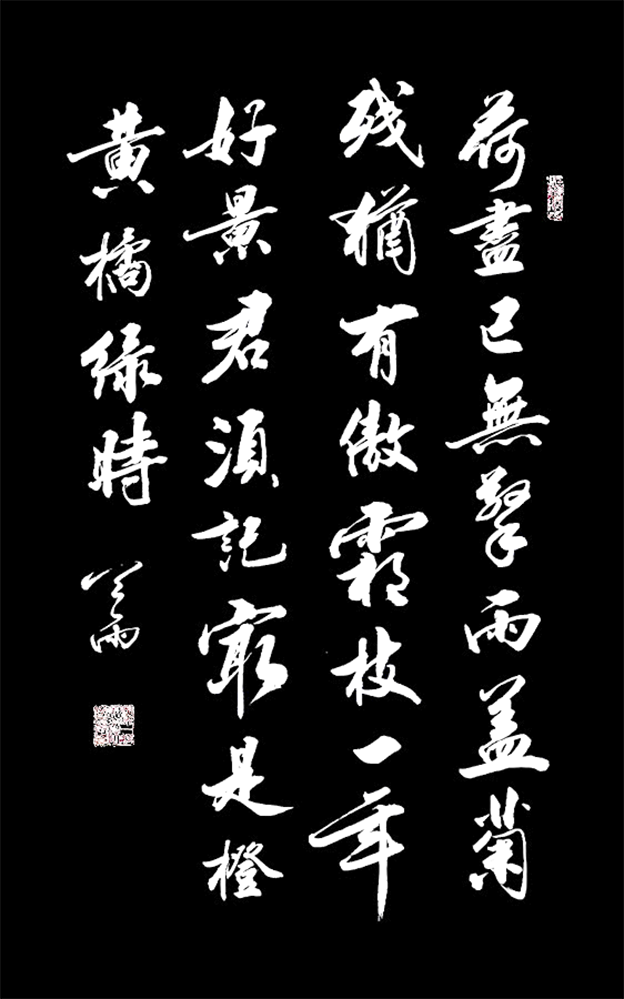 荷盡已無擎雨盖菊
残猶有傲霜枝一年
好景君須記最是橙
黄橘緑時
雨